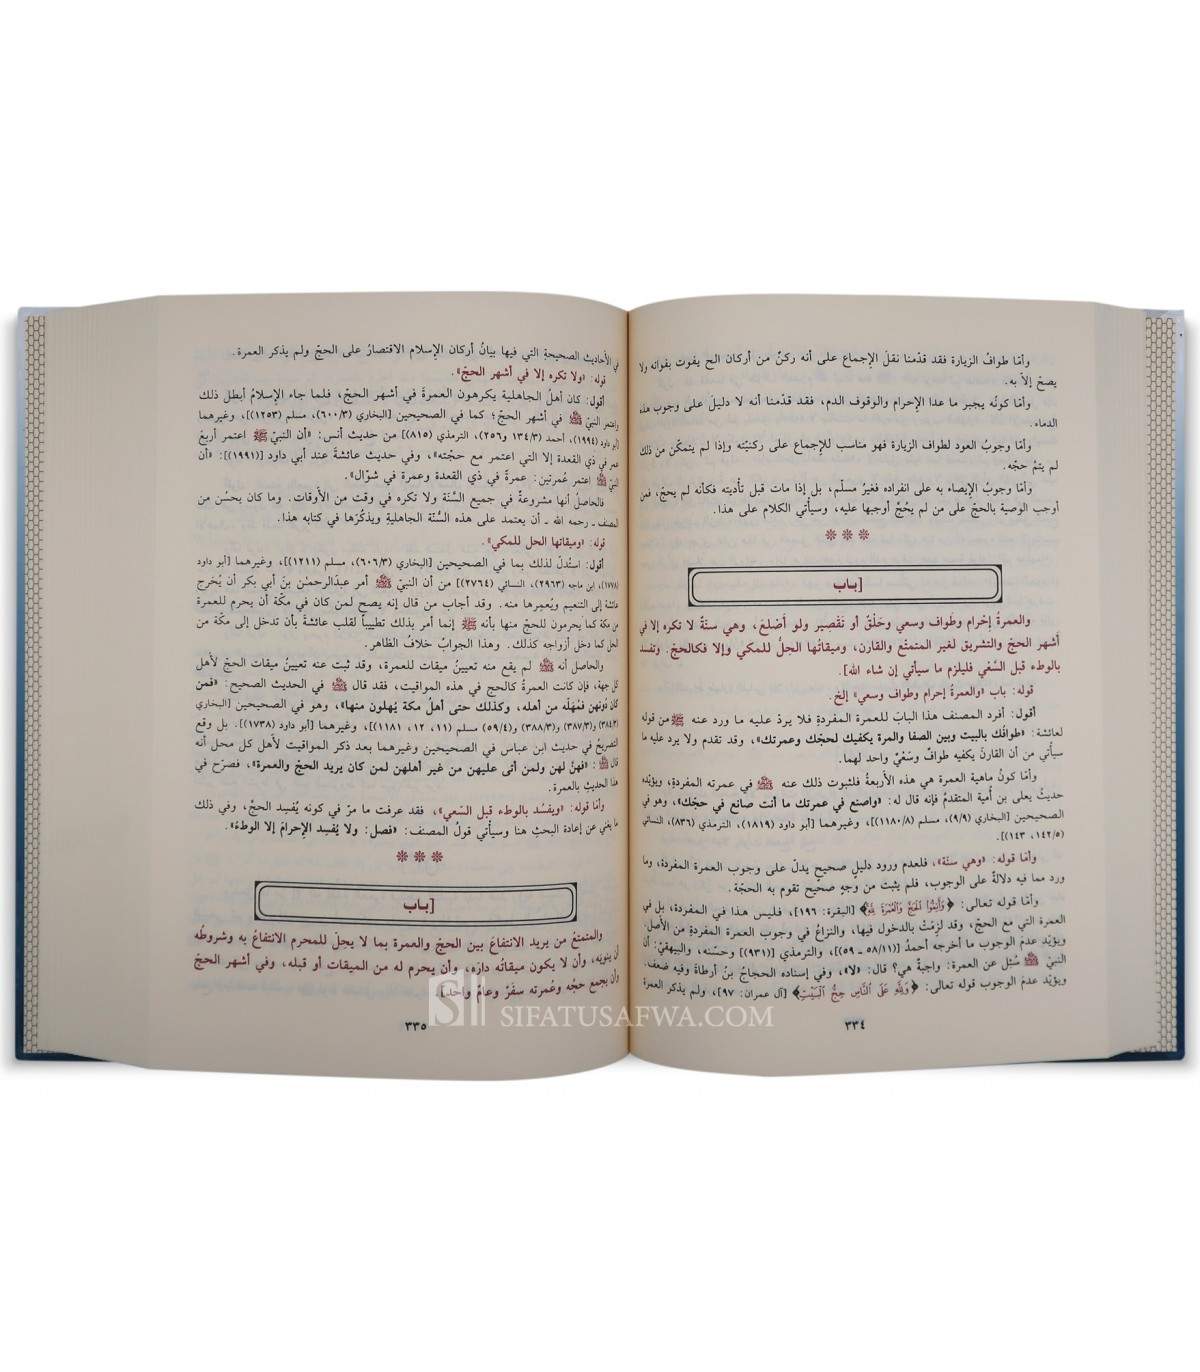 وأمّا طوافُ الزيارة فقد قدّمنا نقلَ الإجماع على أنه ركنٌ من أركان الحج يفوت بفواته ولا
يصحّ إلاّ به.
وأمّا كونُه يجبر ما عدا الإحرام والوقوف الدم، فقد قدّمنا أنه لا دليلَ على وجوب هذه
الدماء.
وأمّا وجوبُ العود لطواف الزيارة فهو مناسب للإجماع على ركنيّته وإذا لم يتمكّن من ذلك
لم يتمّ حجّه.
وأمّا وجوبُ الإيصاء به على انفراده فغيرُ مسلّم، بل إذا مات قبل تأديته فكأنه لم يحجّ، فمن
أوجب الوصية بالحجّ على من لم يَحُجّ أوجبها عليه، وسيأتي الكلام على هذا.
[باب
والعمرةُ إحْرام وطَواف وسعي وحَلْقٌ أو تَقْصِير ولو أَصْلعَ، وهي سنّةٌ لا تكره إلا في
أَشهر الحجّ والتشريق لغير المتمتّع والقارن، وميقاتُها الحِلُّ للمكي وإلا فكالحجّ. وتفسد
بالوطء قبل السَّعْي فليلزم ما سيأتي إن شاء الله].
قوله: باب «والعمرةُ إحرام وطواف وسعي» إلخ.
أقول: أفرد المصنف هذا البابَ للعمرة المفردةِ فلا يرِدُ عليه ما ورد عنه ﷺ من قوله
لعائشة: «طوافُك بالبيت وبين الصفا والمرة يكفيك لحجّك وعمرتك»، وقد تقدم ولا يرد عليه ما
سيأتي من أن القارنَ يكفيه طوافٌ وسَعْيٌ واحد لهما.
وأمّا كونُ ماهية العمرة هي هذه الأربعةُ فلثبوت ذلك عنه ﷺ في عمرته المفردةِ، ويؤيّده
حديثُ يعلى بن أمية المتقدمُ فإنه قال له: «واصنع في عمرتك ما أنت صانع في حجّك»، وهو في
الصحيحين [البخاري (٩/٩)، مسلم (١١٨٠/٨)]، وغيرهما [أبو داود (١٨١٩)، الترمذي (٨٣٦)، النسائي
(١٤٢/٥، ١٤٣)].
وأمّا قوله: «وهي سنّة»، فلعدم ورود دليلٍ صحيح يدلّ على وجوب العمرة المفردة، وما
ورد مما فيه دلالةٌ على الوجوب، فلم يثبت من وجهٍ صحيح تقوم به الحجّة.
وأمّا قوله تعالى: ﴿وَأَتِمُّوا۟ ٱلْحَجَّ وَٱلْعُمْرَةَ لِلَّهِ﴾ [البقرة: ١٩٦]، فليس هذا في المفردة، بل في
العمرة التي مع الحجّ، وقد لزِمَتْ بالدخول فيها، والنزاعُ في وجوب العمرة المفردةِ من الأصل.
ويؤيّد عدمَ الوجوب ما أخرجه أحمدُ [(٥٨/١١ ـ ٥٩)]، والترمذي [(٩٣١)] وحسّنه، والبيهقيّ: أن
النبيّ ﷺ سُئِل عن العمرة: واجبةٌ هي؟ قال: «لا»، وفي إسناده الحجاجُ بنُ أرطأةَ وفيه ضعف.
ويؤيّد عدمَ الوجوب قوله تعالى: ﴿وَلِلَّهِ عَلَى ٱلنَّاسِ حِجُّ ٱلْبَيْتِ﴾ [آل عمران: ٩٧]، ولم يذكر العمرة
٣٣٤
في الأحاديث الصحيحةِ التي فيها بيانُ أركان الإسلام الاقتصارُ على الحجّ ولم يذكر العمرة.
قوله: «ولا تكره إلا في أشهر الحجّ».
أقول: كان أهلُ الجاهلية يكرهون العمرةَ في أشهر الحجّ، فلما جاء الإسلامُ أبطل ذلك
واعتمر النبيّ ﷺ في أشهر الحجّ؛ كما في الصحيحين [البخاري (٦٠٠/٣)، مسلم (١٢٥٣)]، وغيرهما
[أبو داود (١٩٩٤)، أحمد (١٣٤/٣ و٢٥٦)، الترمذي (٨١٥)] من حديث أنس: «أن النبيّ ﷺ اعتمر أربعَ
عمر في ذي القعدة إلا التي اعتمر مع حجّته»، وفي حديث عائشةَ عند أبي داود [(١٩٩١)]: «أن
النبيّ ﷺ اعتمر عُمرتين: عمرةً في ذي القعدة وعمرة في شوّال».
فالحاصلُ أنها مشروعةٌ في جميع السَّنَة ولا تكره في وقت من الأوقات. وما كان يحسُن من
المصنف ـ رحمه الله ـ أن يعتمد على هذه السُّنّة الجاهليةِ ويذكُرَها في كتابه هذا.
قوله: «وميقاتها الحل للمكي».
أقول: استُدلّ لذلك بما في الصحيحين [البخاري (٦٠٦/٣)، مسلم (١٢١١)]، وغيرهما [أبو داود
(١٧٧٨)، ابن ماجه (٢٩٦٣)، النسائي (٢٧٦٤)] من أن النبيّ ﷺ أمر عبدَالرحمٰن بنَ أبي بكر أن يُخرج
عائشة إلى التنعيم ويُعمِرها منه. وقد أجاب من قال إنه يصح لمن كان في مكّة أن يحرم للعمرة
من مكة كما يحرمون للحجّ منها بأنه ﷺ إنما أمر بذلك تطييباً لقلب عائشةَ بأن تدخل إلى مكّة من
الحل كما دخل أزواجه كذلك. وهذا الجوابُ خلافُ الظاهر.
والحاصل أنه ﷺ لم يقع منه تعيينُ ميقات للعمرة، وقد ثبت عنه تعيينُ ميقات الحجّ لأهل
كل جهة، فإن كانت العمرةُ كالحج في هذه المواقيت، فقد قال ﷺ في الحديث الصحيح: «فمن
كان دُونَهن فمُهَلّه من أهله، وكذلك حتى أهلُ مكة يُهلون منها»، وهو في الصحيحين [البخاري
(٣٨٤/٣) و(٣٨٧/٣) و(٣٨٨/٣) و(٥٩/٤)، مسلم (١١، ١٢، ١١٨١)]، وغيرهما [أبو داود (١٧٣٨)]. بل وقع
التصريحُ في حديث ابن عباس في الصحيحين وغيرهما بعد ذكر المواقيت لأهل كل محل أنه
قال ﷺ: «فهنّ لهن ولمن أتى عليهن من غير أهلهن لمن كان يريد الحجّ والعمرة»، فصرّح في
هذا الحديث بالعمرة.
وأما قوله: «ويفسُد بالوطء قبل السّعي»، فقد عرفت ما مرّ في كونه يُفسِد الحجّ، وفي ذلك
ما يغني عن إعادة البحث هنا وسيأتي قولُ المصنف: «فصل: ولا يُفسِد الإحرامَ إلا الوطءُ».
[باب
والمتمتعُ من يريد الانتفاعَ بين الحجّ والعمرة بما لا يحِلّ للمحرم الانتفاعُ به وشروطُه
أن ينويَه، وأن لا يكون ميقاتُه دارَه، وأن يحرم له من الميقات أو قبله، وفي أشهر الحجّ
وأن يجمع حجُّه وعُمرته سفَرٌ وعامٌ واحد].
٣٣٥
SIFATUSAFWA.COM